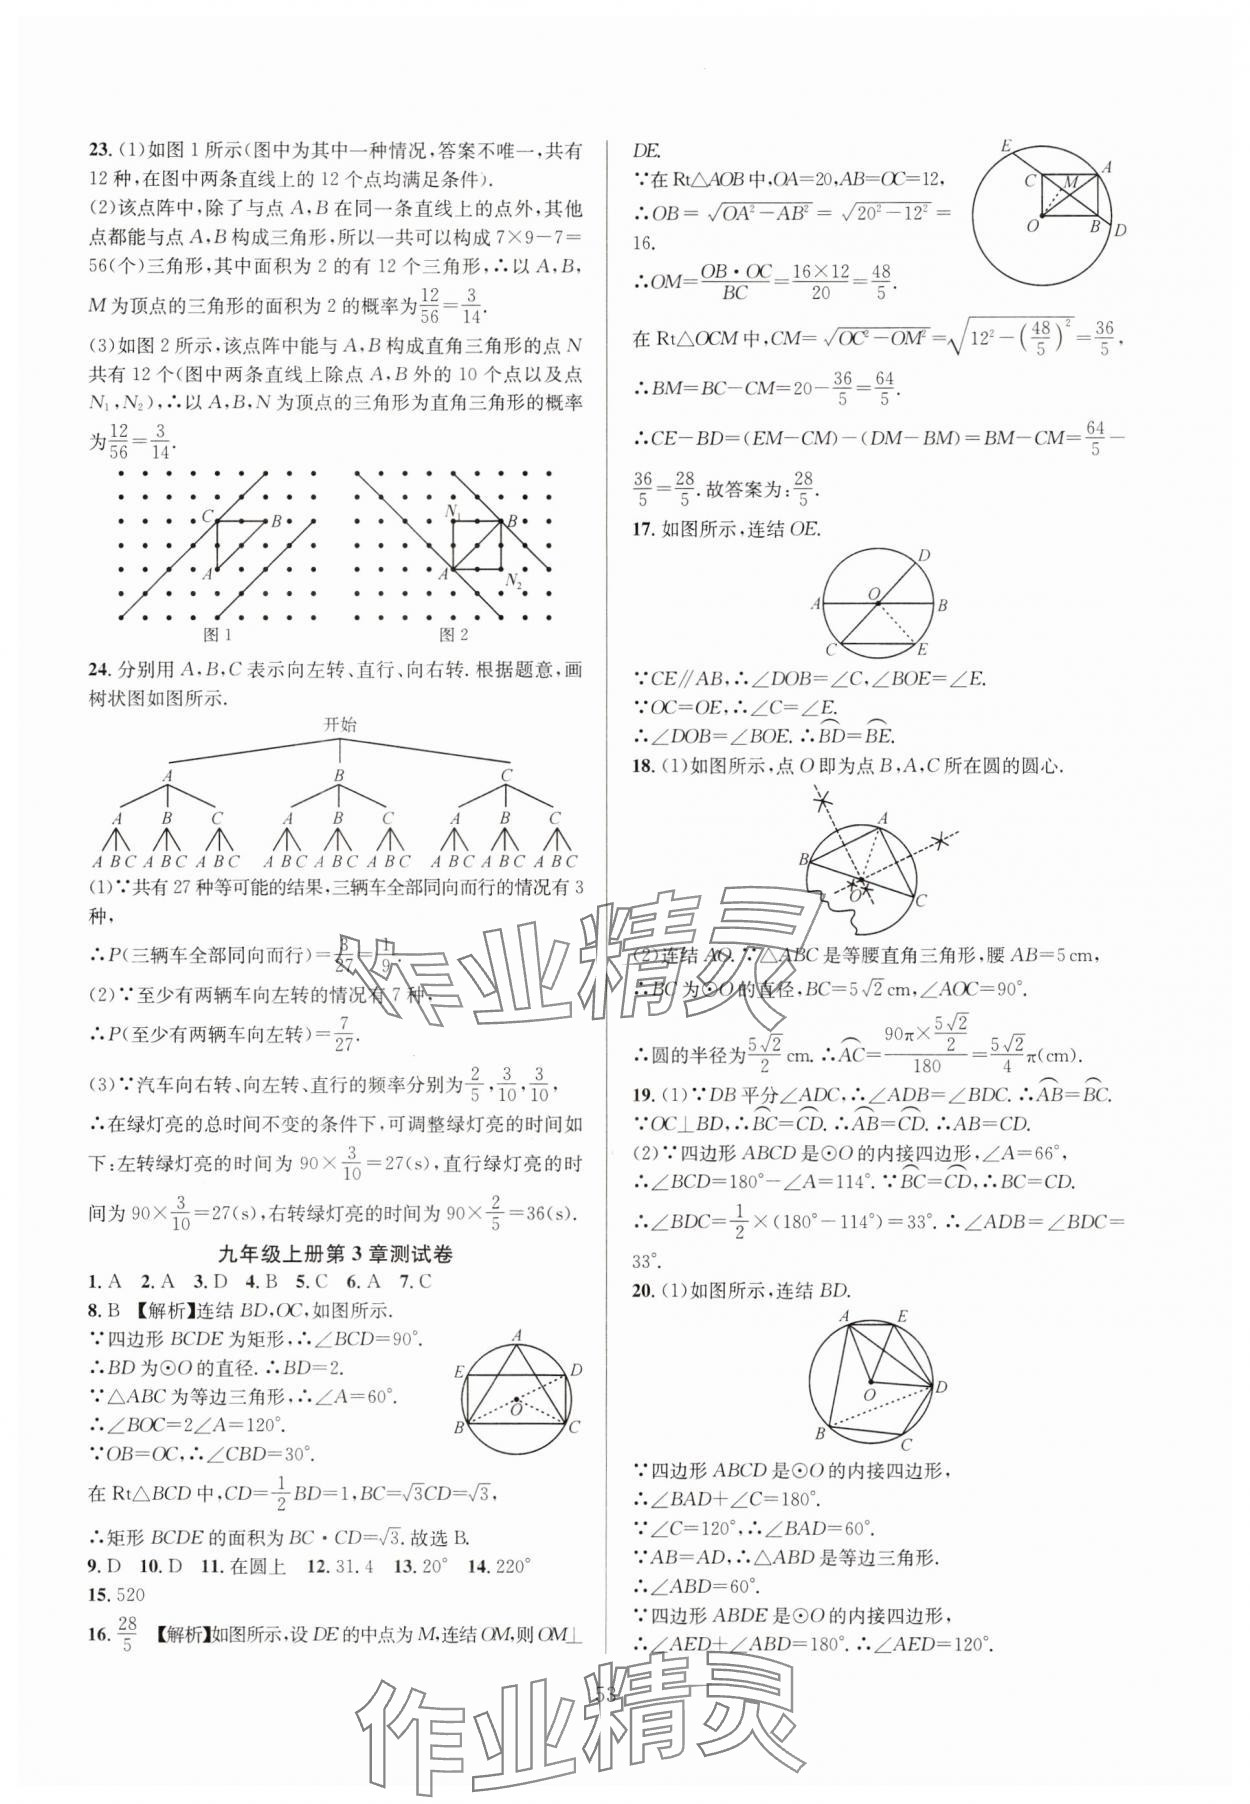 23. (1)如图1所示(图中为其中一种情况,答案不唯一,共有
12种,在图中两条直线上的12个点均满足条件).
(2)该点阵中,除了与点A,B在同一条直线上的点外,其他
点都能与点A,B构成三角形,所以一共可以构成7×9-7=
56(个)三角形,其中面积为2的有12个三角形,∴以A,B,
M为顶点的三角形的面积为2的概率为12/56=3/14.
(3)如图2所示,该点阵中能与A,B构成直角三角形的点N
共有12个(图中两条直线上除点A,B外的10个点以及点
N₁,N₂),∴以A,B,N为顶点的三角形为直角三角形的概率
为12/56=3/14.
C B A
图1
N₁ B A N₂
图2
24. 分别用A,B,C表示向左转、直行、向右转. 根据题意,画
树状图如图所示.
开始
A B C
A B C A B C A B C
A B C A B C A B C A B C A B C A B C A B C A B C A B C
(1)∵共有27种等可能的结果,三辆车全部同向而行的情况有3
种,
∴P(三辆车全部同向而行)=3/27=1/9.
(2)∵至少有两辆车向左转的情况有7种,
∴P(至少有两辆车向左转)=7/27.
(3)∵汽车向右转、向左转、直行的频率分别为2/5,3/10,3/10,
∴在绿灯亮的总时间不变的条件下,可调整绿灯亮的时间如
下:左转绿灯亮的时间为90×3/10=27(s),直行绿灯亮的时
间为90×3/10=27(s),右转绿灯亮的时间为90×2/5=36(s).
九年级上册第3章测试卷
1. A 2. A 3. D 4. B 5. C 6. A 7. C
8. B 【解析】连结BD,OC,如图所示.
∵四边形BCDE为矩形,∴∠BCD=90°.
∴BD为⊙O的直径. ∴BD=2.
∵△ABC为等边三角形,∴∠A=60°.
∴∠BOC=2∠A=120°.
∵OB=OC,∴∠CBD=30°.
A E D O B C
在Rt△BCD中,CD=1/2BD=1,BC=√3CD=√3,
∴矩形BCDE的面积为BC·CD=√3. 故选B.
9. D 10. D 11. 在圆上 12. 31.4 13. 20° 14. 220°
15. 520
16. 28/5 【解析】如图所示,设DE的中点为M,连结OM,则OM⊥
DE.
∵在Rt△AOB中,OA=20,AB=OC=12,
∴OB=√(OA²-AB²)=√(20²-12²)=
16.
∴OM=OB·OC/BC=16×12/20=48/5.
E A C M O B D
在Rt△OCM中,CM=√(OC²-OM²)=√(12²-(48/5)²)=36/5,
∴BM=BC-CM=20-36/5=64/5.
∴CE-BD=(EM-CM)-(DM-BM)=BM-CM=64/5-
36/5=28/5. 故答案为:28/5.
17. 如图所示,连结OE.
D A O B C E
∵CE∥AB,∴∠DOB=∠C,∠BOE=∠E.
∵OC=OE,∴∠C=∠E.
∴∠DOB=∠BOE. ∴⌒BD=⌒BE.
18. (1)如图所示,点O即为点B,A,C所在圆的圆心.
A B O C
(2)连结AO. ∵△ABC是等腰直角三角形,腰AB=5 cm,
∴BC为⊙O的直径,BC=5√2 cm,∠AOC=90°.
∴圆的半径为5√2/2 cm. ∴⌒AC=(90π×5√2/2)/180=5√2/4π(cm).
19. (1)∵DB平分∠ADC,∴∠ADB=∠BDC. ∴⌒AB=⌒BC.
∵OC⊥BD,∴⌒BC=⌒CD. ∴⌒AB=⌒CD. ∴AB=CD.
(2)∵四边形ABCD是⊙O的内接四边形,∠A=66°,
∴∠BCD=180°-∠A=114°. ∵⌒BC=⌒CD,∴BC=CD.
∴∠BDC=1/2×(180°-114°)=33°. ∴∠ADB=∠BDC=
33°.
20. (1)如图所示,连结BD.
A E O D B C
∵四边形ABCD是⊙O的内接四边形,
∴∠BAD+∠C=180°.
∵∠C=120°,∴∠BAD=60°.
∵AB=AD,∴△ABD是等边三角形.
∴∠ABD=60°.
∵四边形ABDE是⊙O的内接四边形,
∴∠AED+∠ABD=180°. ∴∠AED=120°.
53
作业精灵
作业精灵